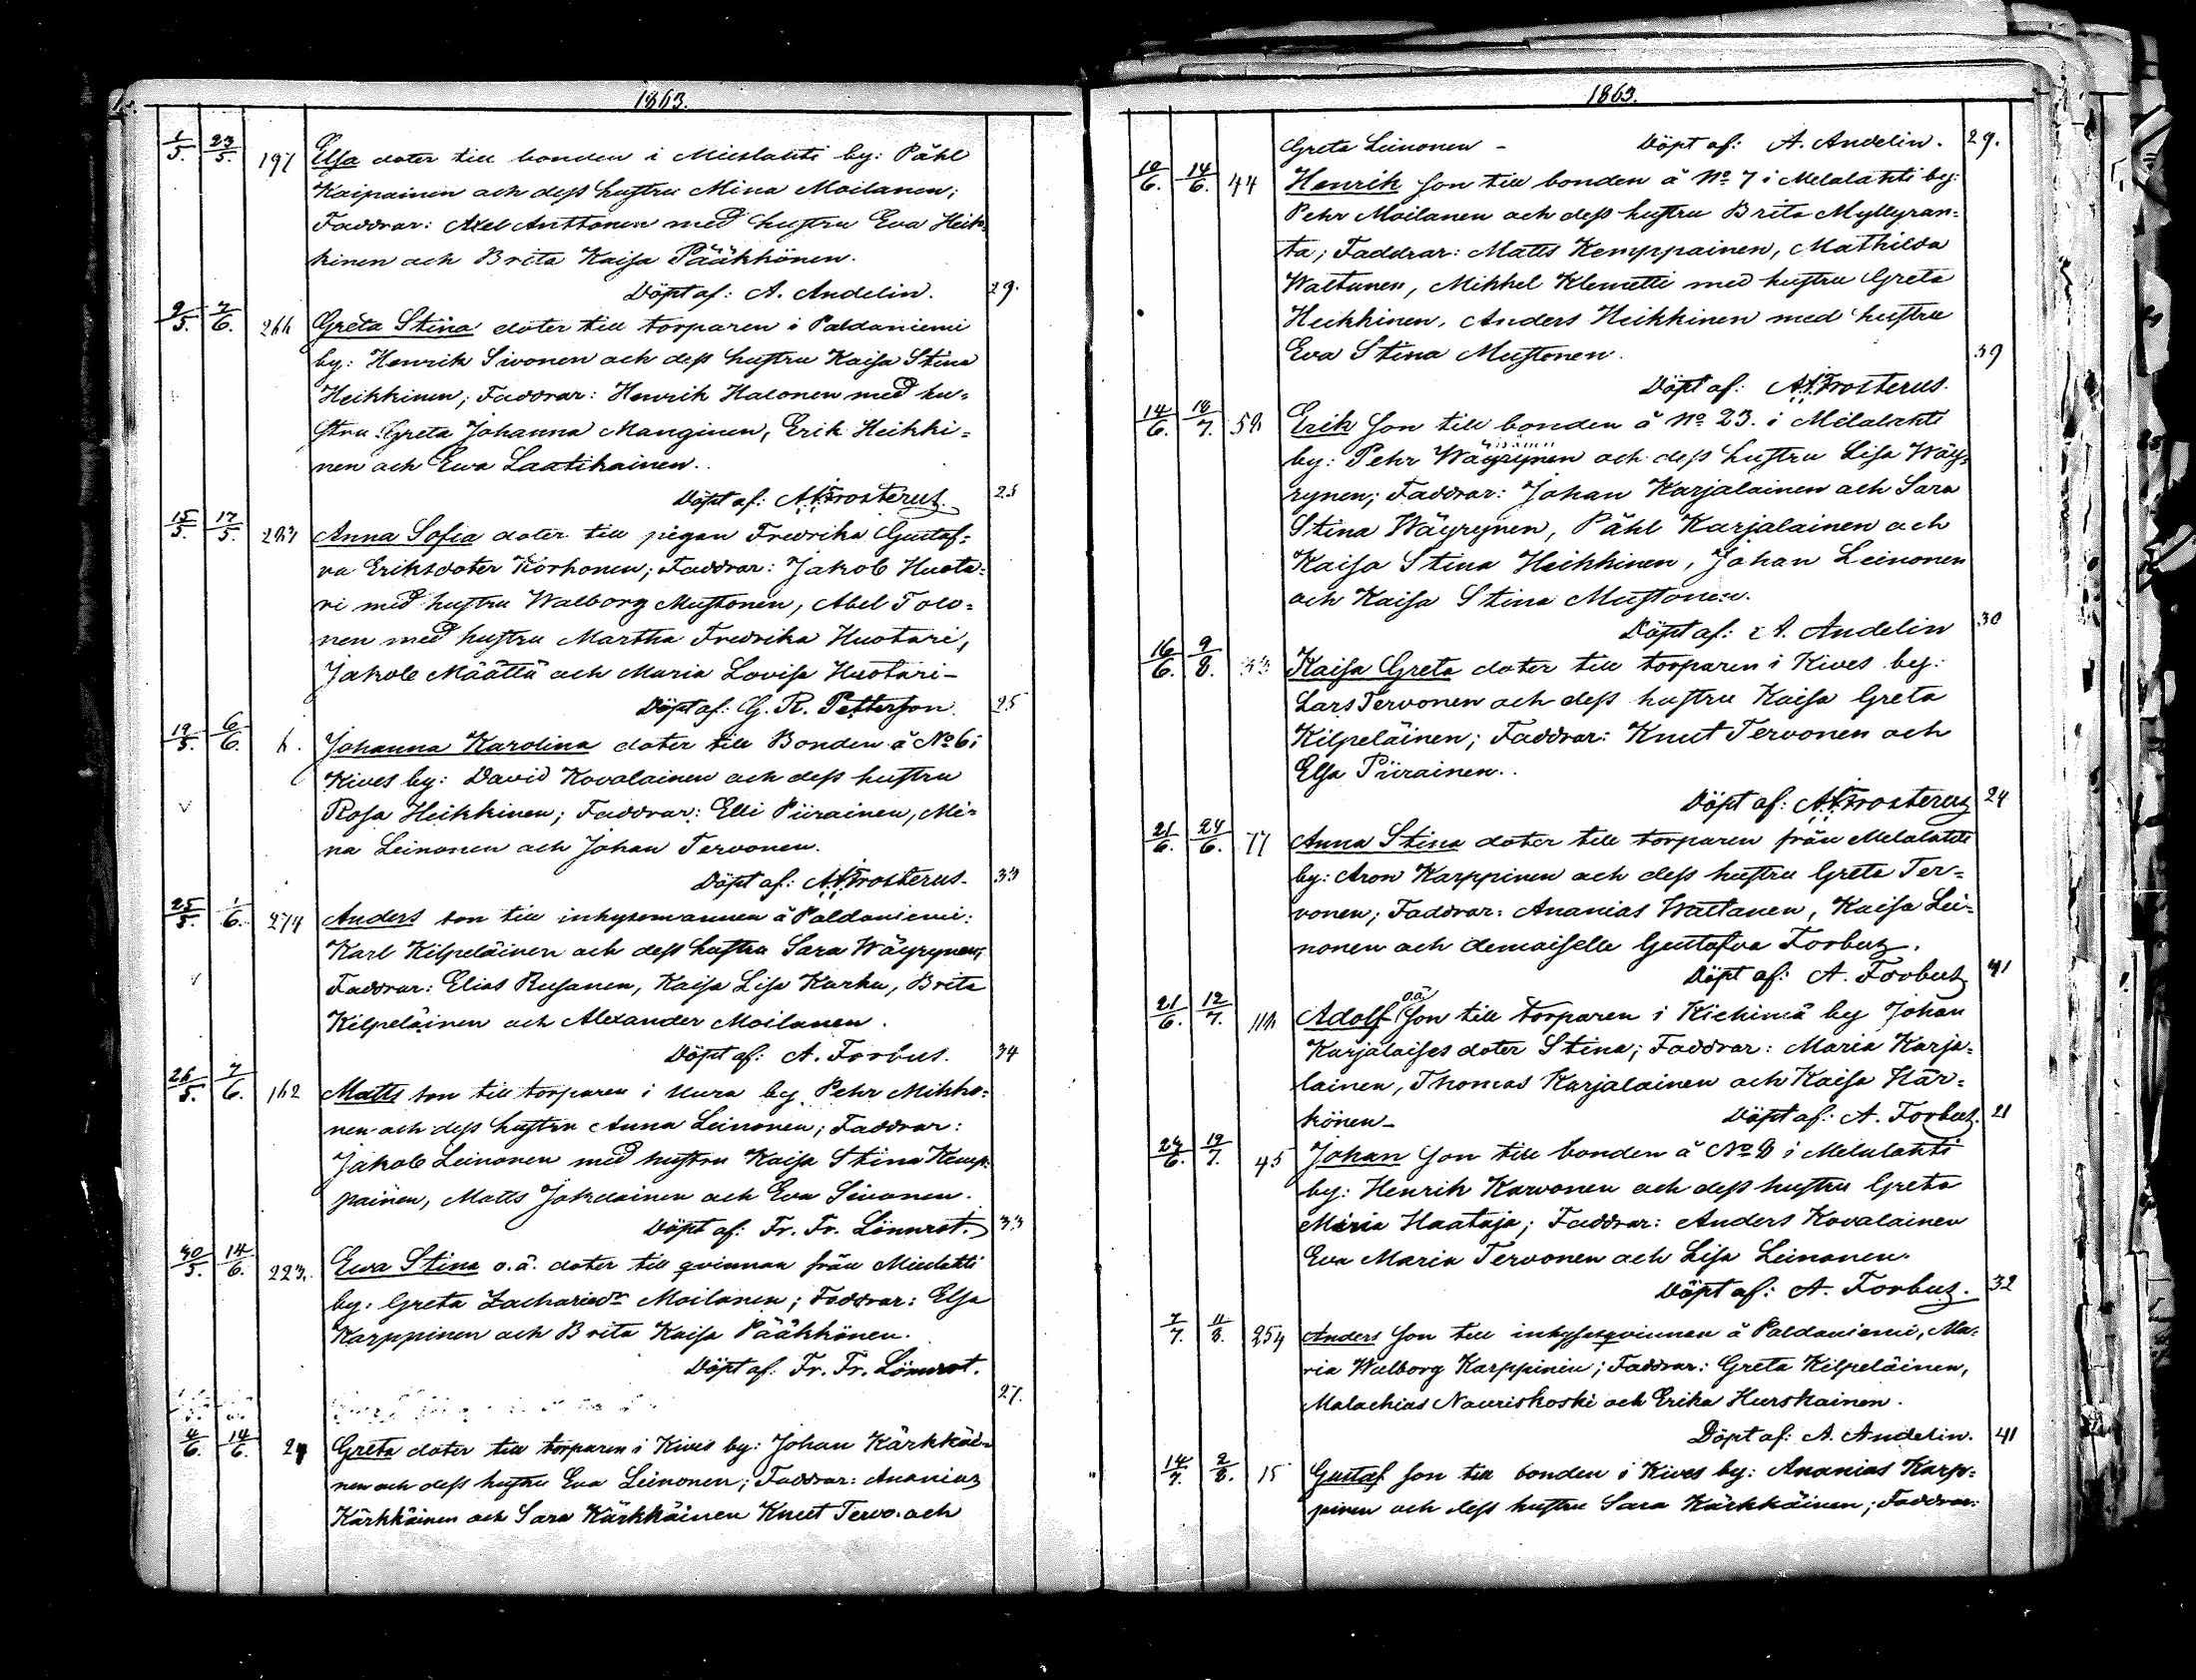 1863.
1/5. 23/5. 191 Elsa doter till bonden i Mieslahti by: Påhl
Kaipainen och dess hustru Mina Moilanen;
Faddrar: Axel Anttonen med hustru Eva Heik-
kinen och Brita Kaisa Pääkkönen.
Döpt af: A. Andelin. 29.
9/5. 7/6. 266 Greta Stina doter till torparen i Paldaniemi
by: Henrik Sivonen och dess hustru Kaisa Stina
Heikkinen; Faddrar: Henrik Halonen med hu=
stru Greta Johanna Manginen, Erik Heikki=
nen och Ewa Laatikainen.
Döpt af: A. Frosterus. 25
15/5. 17/5. 283 Anna Sofia doter till pigan Fredrika Gustaf=
va Eriksdoter Korhonen; Faddrar: Jakob Huota=
ri med hustru Walborg Mustonen, Abel Tolo=
nen med hustru Martha Fredrika Huotari,
Jakob Määttä och Maria Lovisa Huotari-
Döpt af: G. R. Petterson. 25
19/5. 6/6. 6. Johanna Karolina doter till Bonden å No 6 i
Kives by: David Kovalainen och dess hustru
Rosa Heikkinen; Faddrar: Elli Piirainen, Mi-
na Leinonen och Johan Tervonen.
Döpt af: A. Frosterus. 33
25/5. 1/6. 274 Anders son till inhysemannen å Paldaniemi:
Karl Kilpeläinen och dess hustru Sara Wäyrynen;
Faddrar: Elias Rusanen, Kaisa Lisa Karhu, Brita
Kilpeläinen och Alexander Moilanen.
Döpt af: A. Forbus. 34
26/5. 7/6. 162 Matts son till torparen i Uura by Pehr Mikko=
nen och dess hustru Anna Leinonen; Faddrar:
Jakob Leinonen med hustru Kaisa Stina Kemp=
painen, Matts Jokelainen och Eva Sivonen.
Döpt af: Fr. Fr. Lönnrot. 33
30/5. 14/6. 223. Ewa Stina o.ä. doter till qvinnan från Mieslahti
by: Greta Zachariedr Moilanen; Faddrar: Elsa
Karppinen och Brita Kaisa Pääkkönen.
Döpt af: Fr. Fr. Lönnrot.
27.
4/6. 14/6. 24 Greta doter till torparen i Kives by: Johan Kärkkäi=
nen och dess hustru Eva Leinonen; Faddrar: Ananias
Kärkkäinen och Sara Kärkkäinen Knut Tervo och
1863.
Greta Leinonen - Döpt af: A. Andelin. 29.
10/6. 14/6. 44 Henrik son till bonden å No 7 i Melalahti by:
Pehr Moilanen och dess hustru Brita Myllyran=
ta; Faddrar: Matts Kemppainen, Mathilda
Waltanen, Mikkel Klemetti med hustru Greta
Heikkinen, Anders Heikkinen med hustru
Eva Stina Mustonen. 39
Döpt af: A. Frosterus.
14/6. 18/7. 58 Erik son till bonden å No 23. i Melalahti
by: Pehr Wäyrynen och dess hustru Lisa Wäy=
rynen; Faddrar: Johan Karjalainen och Sara
Stina Wäyrynen, Påhl Karjalainen och
Kaisa Stina Heikkinen, Johan Leinonen
och Kaisa Stina Mustonen.
Döpt af: A. Andelin 30
16/6. 9/8. 33 Kaisa Greta doter till torparen i Kives by:
Lars Tervonen och dess hustru Kaisa Greta
Kilpeläinen; Faddrar: Knut Tervonen och
Elsa Piirainen.
Döpt af: A. Frosterus 24
21/6. 24/6. 77 Anna Stina doter till torparen från Melalahti
by: Aron Karppinen och dess hustru Greta Ter=
vonen; Faddrar: Ananias Waltanen, Kaisa Lei=
nonen och demoiselle Gustafva Forbus.
Döpt af: A. Forbus 41
21/6. 12/7. 116 Adolf o.ä. son till torparen i Kiehimä by Johan
Karjalaises doter Stina; Faddrar: Maria Karja=
lainen, Thomas Karjalainen och Kaisa Här=
könen- Döpt af: A. Forbus. 21
24/6. 19/7. 45 Johan son till bonden å No 8 i Melalahti
by: Henrik Karvonen och dess hustru Greta
Maria Haataja; Faddrar: Anders Kovalainen
Eva Maria Tervonen och Lisa Leinonen.
Döpt af: A. Forbus. 32
7/7. 11/8. 254 Anders son till inhysesqvinnan å Paldaniemi, Ma=
ria Walborg Karppinen; Faddrar: Greta Kilpeläinen,
Malachias Nauriskoski och Erika Hurskainen.
Döpt af: A. Andelin. 41
14/7. 2/8. 15 Gustaf son till bonden i Kives by: Ananias Karp=
pinen och dess hustru Sara Kärkkäinen; Faddrar: